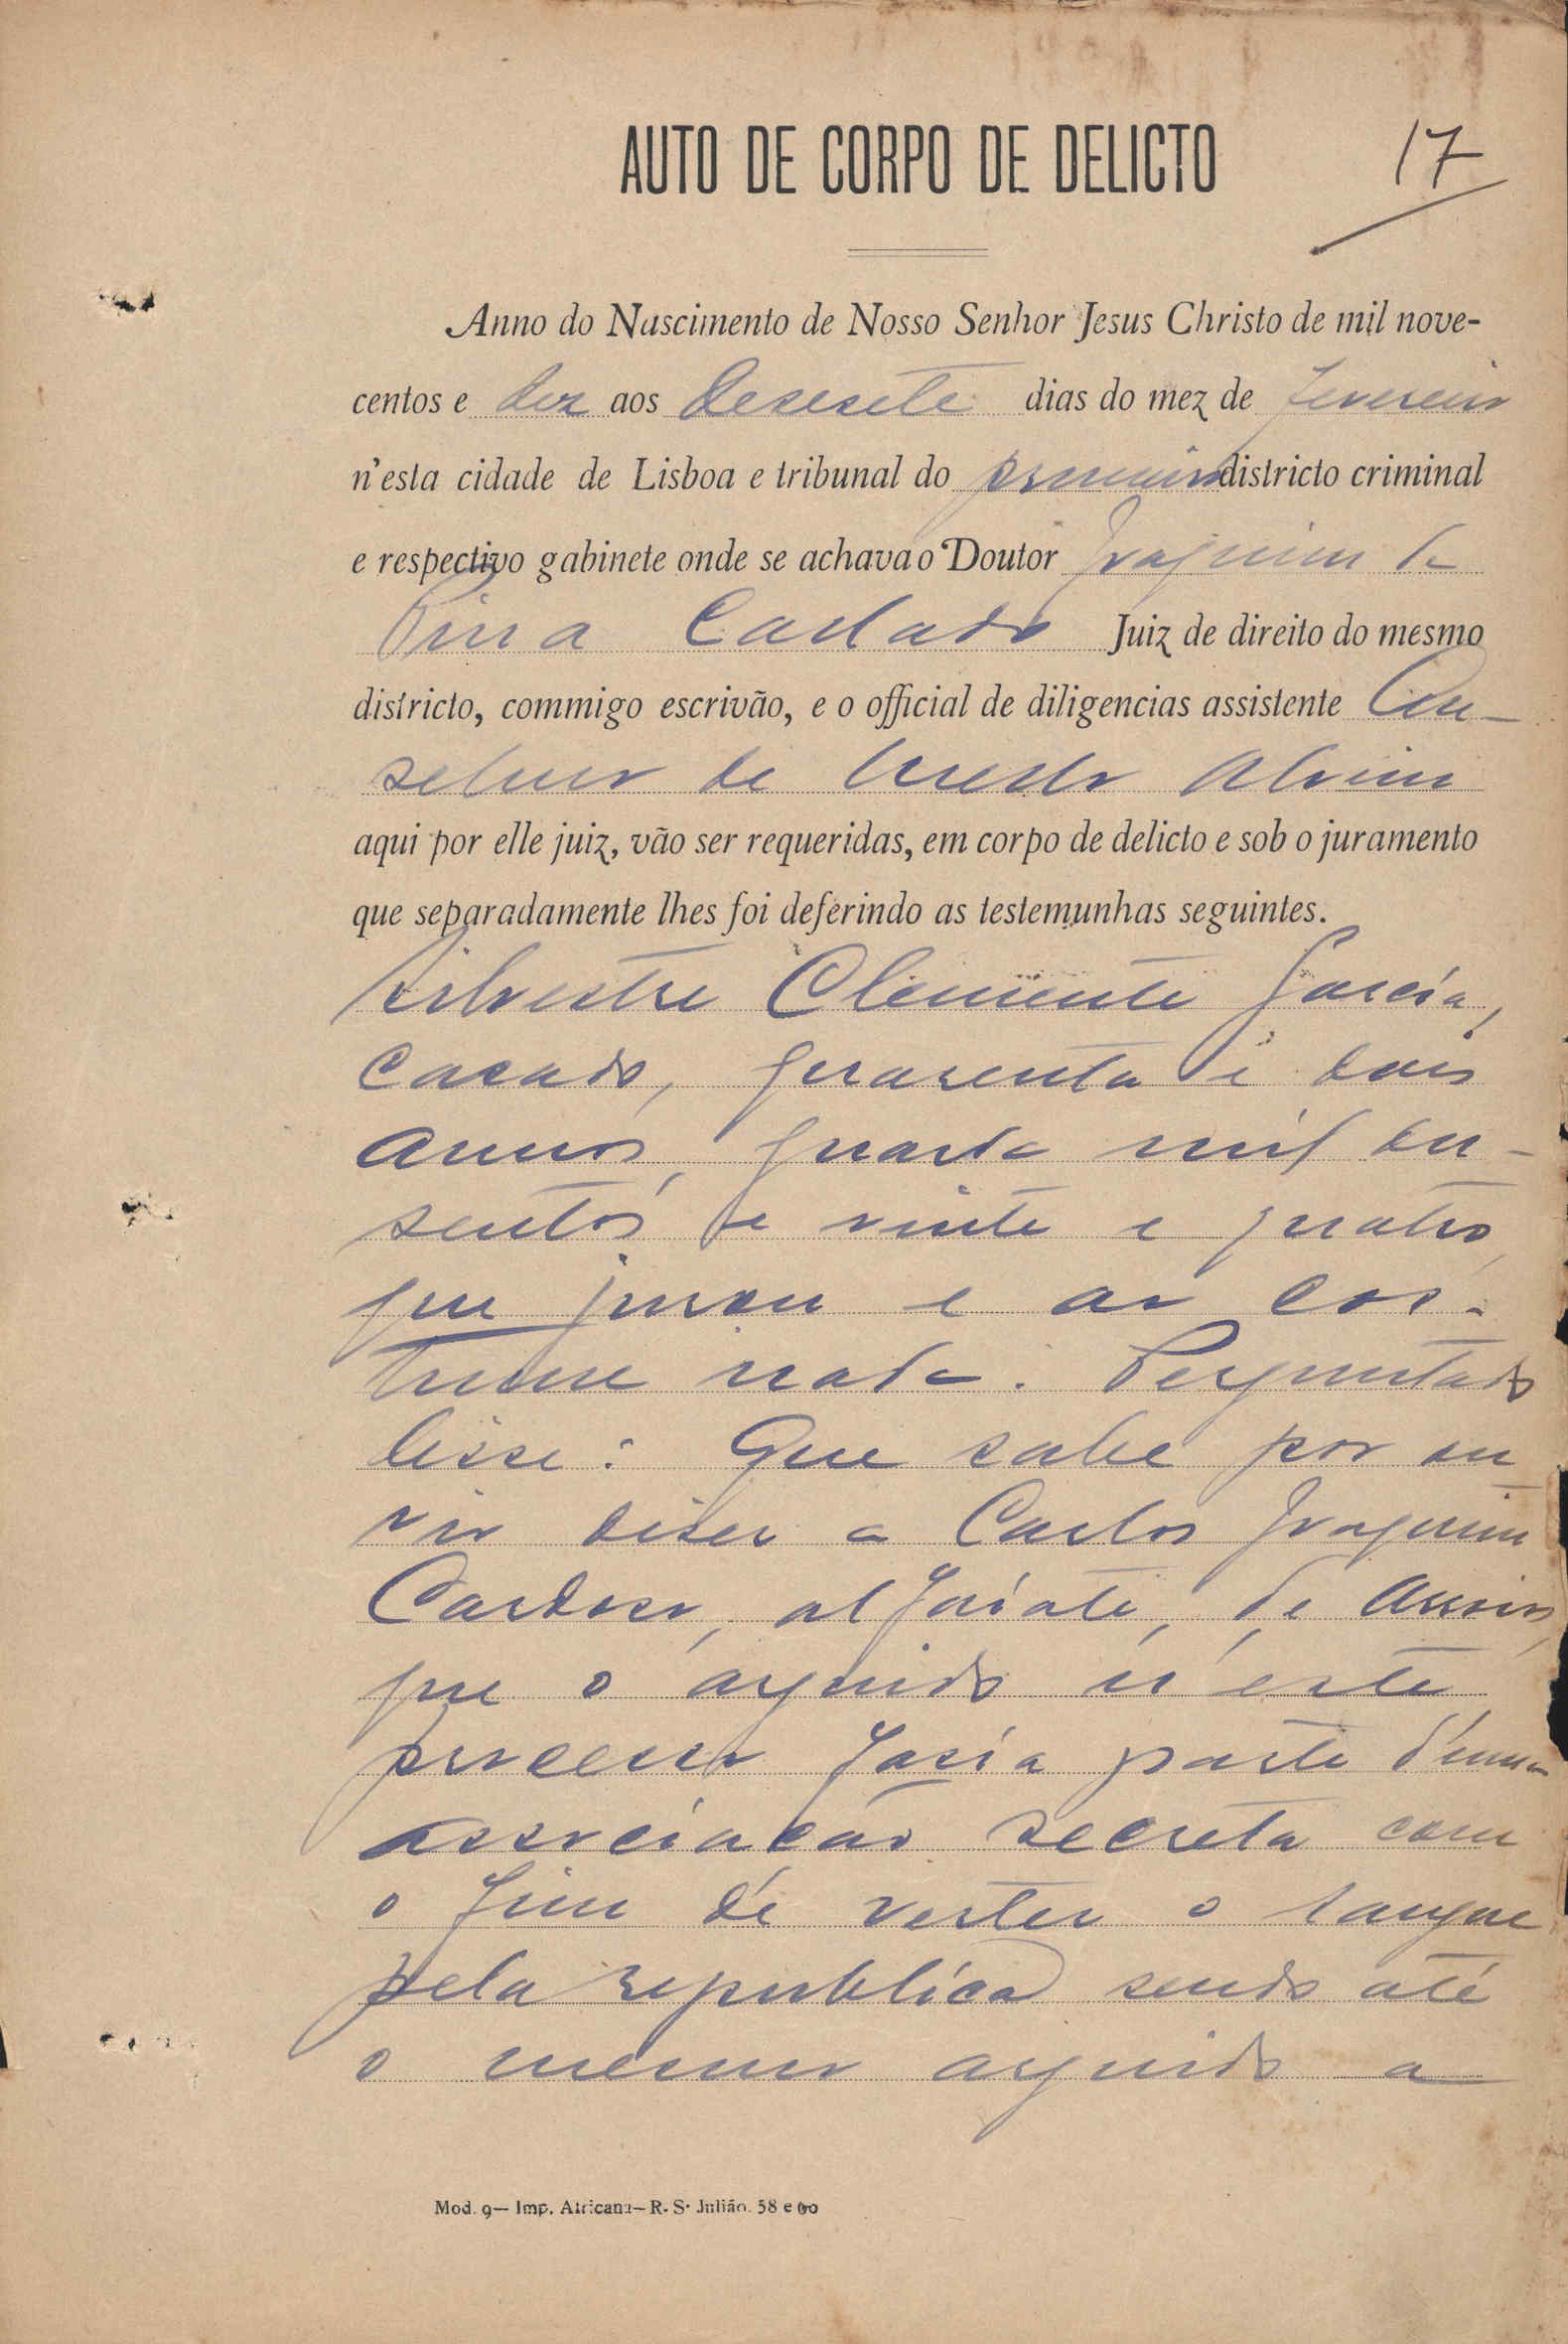 AUTO DE CORPO DE DELICTO
17
Anno do Nascimento de Nosso Senhor Jesus Christo de mil nove-
centos e dez aos desesete dias do mez de fevereiro
n'esta cidade de Lisboa e tribunal do primeiro districto criminal
e respectivo gabinete onde se achava o Doutor Joaquim de
Pina Callado Juiz de direito do mesmo
districto, commigo escrivão, e o official de diligencias assistente An-
selmo de Alvim
aqui por elle juiz, vão ser requeridas, em corpo de delicto e sob o juramento
que separadamente lhes foi deferindo as testemunhas seguintes.
Silvestre Clemente Garcia,
casado, quarenta e dois
annos, guarda mil du-
sentos e vinte e quatro,
que jurou e ao cos-
tume nada. Perguntado
disse: Que sabe por ou
vir diser a Carlos Joaquim
Cardoso, alfaiate, de
que o arguido n'este
processo fasia parte d'uma
associacão secreta com
o fim de verter o sangue
pela republica sendo até
o mesmo arguido a
Mod. 9— Imp. Africana—R. S. Julião. 58 e 60